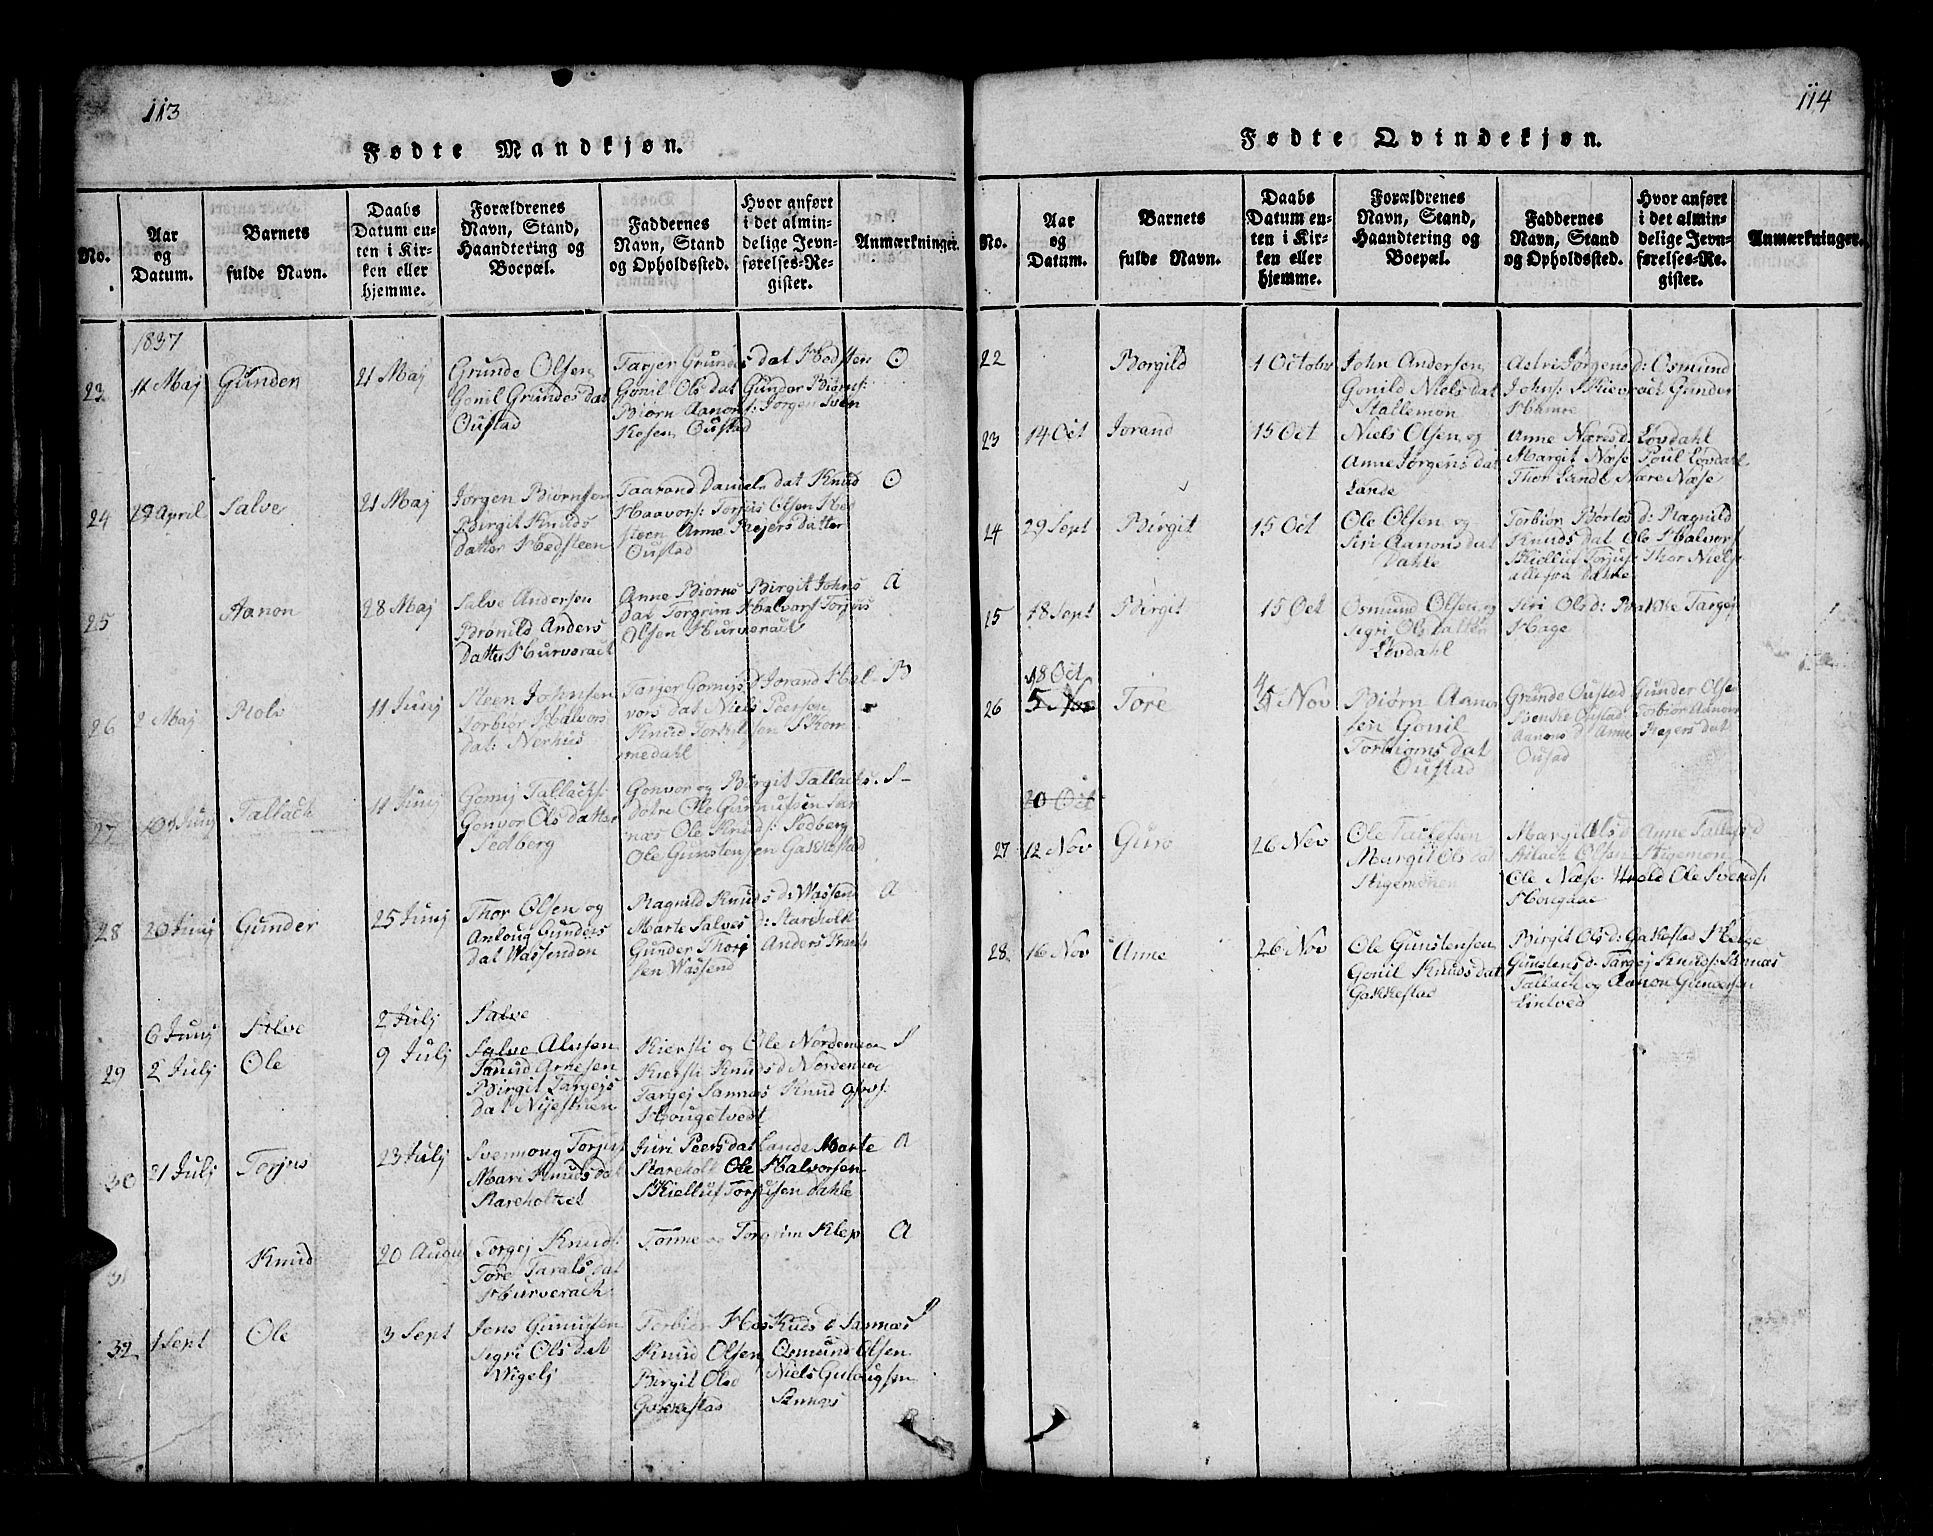 113
Fødte Mandkjøn.
No.
Aar
og
Datum.
Barnets
fulde Navn.
Daabs
Datum en-
ten i Kir-
ken eller
hjemme.
Forældrenes
Navn, Stand,
Haandtering og
Boepæl.
Faddernes
Navn, Stand
og Opholdssted.
Hvor anført
i det almin-
delige Jevn-
førelses-Re-
gister.
Anmærkninger.
1837
23
11 Maj
Gunder
21 Maj
Grunde Olsen
Gonil Grundes dat
Oustad
Tarjer Grundes dat Hedsteen
Gonil Ols dat Gunder Biørns:
Biørn Aanons: Jørgen Sven
Kosen Oustad
O
24
April
Salve
21 Maj
Jørgen Biørnsen
Birgit Knuds
datter Hedsteen
Taarand Daniels dat Knud
Haavors: Torjus Olsen Hed
steen Anne Rejersdatter
Oustad
O
25
Aanon
28 Maj
Salve Andersen
Brønild Anders
Datter Hurverack
Anne Biørns Birgit Johns
Dat Torgrim Halvors Torjus
Olsen Hurverack
A
26
2 Maj
Rolv
11 Junj
Steen Johnsen
Torbiør Halvors
dat: Nerhus
Tarjer Gomijs D Jorand Hal-
vors dat Niels Peersen
Knud Torkilsen Skom
medahl
B
27
Junj
Tallack
11 Junj
Gomij Tallacks:
Gonvor Ols datter
Sedberg
Gonvor og Birgit Tallacks
Dotre Ole Gunnufsen San
næs Ole Knuds: Sedberg
Ole Gunstensen Gakkestad
S
28
20 Junj
Gunder
25 Junj
Thor Olsen og
Anloug Gunders
dat Wassenden
Ragnild Knuds d: Wassend
Marte Salves d: Stareholt
Gunder Thorj Anders Truels
sen Wassend
A
6 Junj
Salve
2 Julj
Salve
29
2 Julj
Ole
9 Julj
Salve Alufsen
Knud Arnesen
Birgit Targejs
dat Nijestuen
Kiersti og Ole Nordemoe
Kiersti Knuds d Nordemoe
Targej Sannæs Knud Osvs:
Hougetvedt
S
30
21 Julj
Torjus
23 Julj
Svennoug Torjus
Mari Knuds dat
Stareholtet
Juri Peersdat Lande Marte
Stareholt Ole Halvorsen
Skielluf Torjusen Dahle
A
31
Knud
20 August
Torgej Knuds:
Tore Taralsdat
Hurverack
Tonne og Torgrim Klep
A
32
1 Sept
Ole
3 Sept
Jens Gunufsen
Segri Olsdat
Vigelj
Torbiør Hos Kuds d Sannæs
Knud Olsen Osmund Olsen
Birgit Olsd Niels Guloug sen
Gakkestad Sannæs
114
Fødte Qvindekjøn.
No.
Aar
og
Datum.
Barnets
fulde Navn.
Daabs
Datum en-
ten i Kir-
ken eller
hjemme.
Forældrenes
Navn, Stand,
Haandtering og
Boepæl.
Faddernes
Navn, Stand
og Opholdssted.
Hvor anført
i det almin-
delige Jevn-
førelses-Re-
gister.
Anmærkninger.
22
Borgild
1 Octobr
John Andersen
Gonild Niels dat
Stallemon
Astri Jørgens d: Osmund
Johns: Skieverack Gunder
Hamre
23
14 Oct
Jorand
15 Oct
Niels Olsen og
Anne Jørgens dat
Lande
Anne Næres d: Løvdahl
Margit Næse Poul Løvdahl
Thor Lande Nære Næse
24
29 Sept
Birgit
15 Oct
Ole Olsen og
Siri Aanonsdat
Dahle
Torbiør Børtes d: Ragnild
Knuds dat Ole Halvors
Skielluf Torjus: Thor Niels:
alle fra Dahle
25
18 Sept
Birgit
15 Oct
Osmund Olsen og
Segri Ols datter
Løvdahl
Siri Ols d: Bakke Targej
Hage
26
18 Oct
5 Nov
Tore
5 Nov
Biørn Aanon
sen Gonil
Torbiørns dat
Oustad
Grunde Oustad Gunder Olsen
Svenke Oustad Torbiør Aanon
Aanons d Anne Rejers dat
Oustad
20 Oct
27
12 Nov
Guro
26 Nov
Ole Tallefsen
Margit Ols dat
Stigemonen
Margit Ols d: Anne Tallefs d
Stilack Olsen Stigemon
Ole Næse Uvold Ole Svends:
Hovgdal
28
16 Nov
Anne
26 Nov
Ole Gunstensen
Gonil Knuds dat
Gakkestad
Birgit Ols d: Gakkestad Helge
Gunstens d. Targej Knuds: Sannæs
Tallack og Aanon Gundersen
Lintved